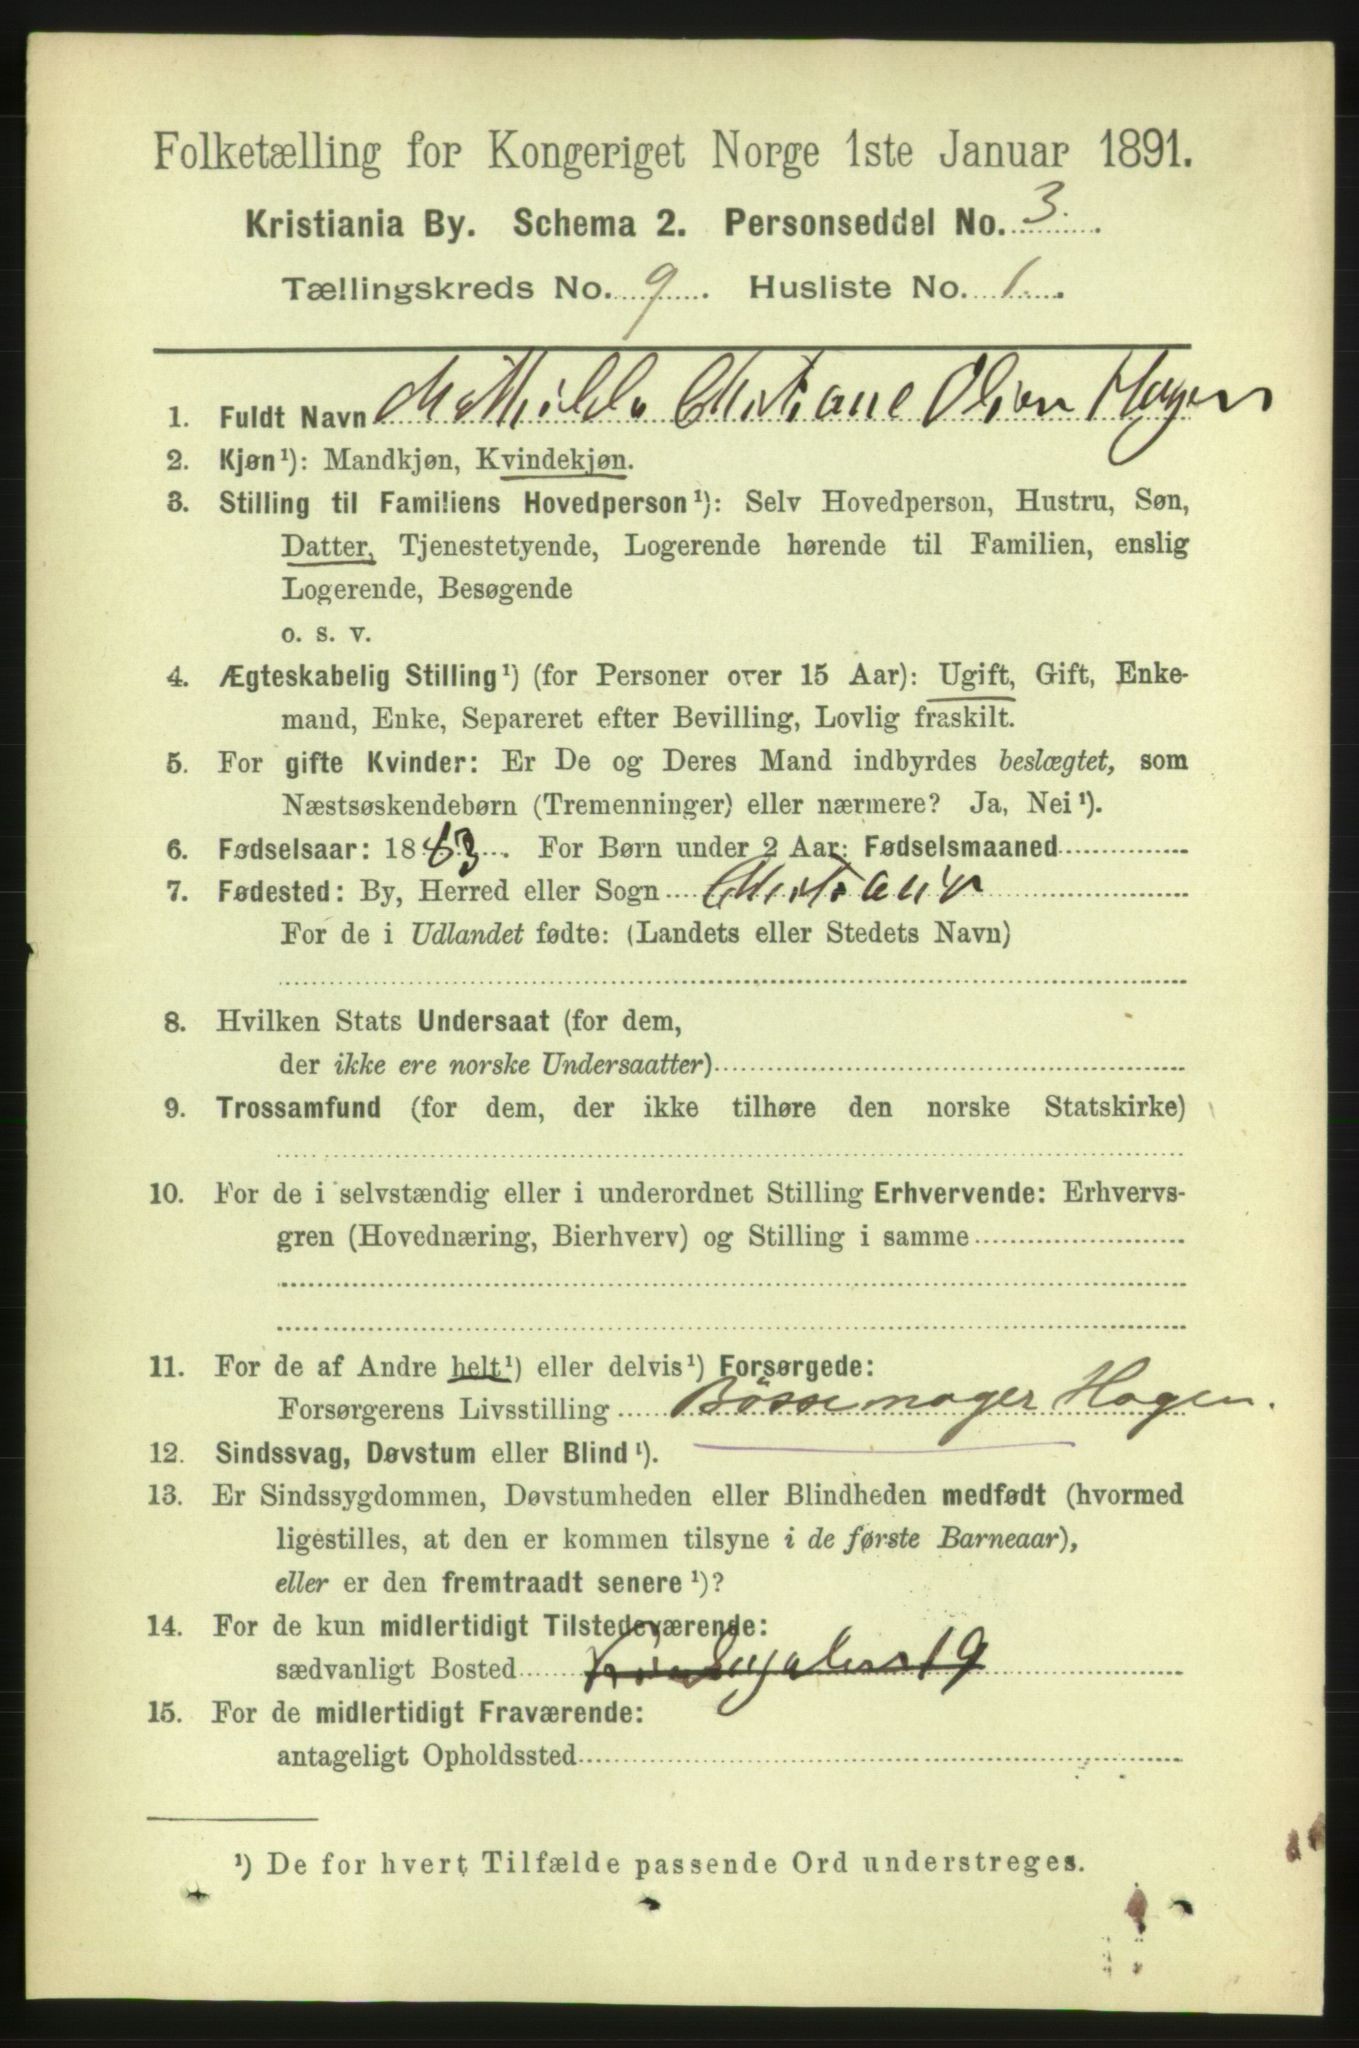 Folketælling for Kongeriget Norge 1ste Januar 1891.
Kristiania By. Schema 2. Personseddel No. 3.
Tællingskreds No. 9. Husliste No. 1.
1. Fuldt Navn Mathilde Christiane Olsen Hagen
2. Kjøn¹): Mandkjøn, Kvindekjøn.
3. Stilling til Familiens Hovedperson¹): Selv Hovedperson, Hustru, Søn,
Datter, Tjenestetyende, Logerende hørende til Familien, enslig
Logerende, Besøgende
o. s. v.
4. Ægteskabelig Stilling¹) (for Personer over 15 Aar): Ugift, Gift, Enke-
mand, Enke, Separeret efter Bevilling, Lovlig fraskilt.
5. For gifte Kvinder: Er De og Deres Mand indbyrdes beslægtet, som
Næstsøskendebørn (Tremenninger) eller nærmere? Ja, Nei¹).
6. Fødselsaar: 1863. For Børn under 2 Aar: Fødselsmaaned
7. Fødested: By, Herred eller Sogn Christiania
For de i Udlandet fødte: (Landets eller Stedets Navn)
8. Hvilken Stats Undersaat (for dem,
der ikke ere norske Undersaatter)
9. Trossamfund (for dem, der ikke tilhøre den norske Statskirke)
10. For de i selvstændig eller i underordnet Stilling Erhvervende: Erhvervs-
gren (Hovednæring, Bierhverv) og Stilling i samme
11. For de af Andre helt¹) eller delvis¹) Forsørgede:
Forsørgerens Livsstilling Bøssemager Hagen.
12. Sindssvag, Døvstum eller Blind¹).
13. Er Sindssygdommen, Døvstumheden eller Blindheden medfødt (hvormed
ligestilles, at den er kommen tilsyne i de første Barneaar),
eller er den fremtraadt senere¹)?
14. For de kun midlertidigt Tilstedeværende:
sædvanligt Bosted 19
15. For de midlertidigt Fraværende:
antageligt Opholdssted
¹) De for hvert Tilfælde passende Ord understreges.